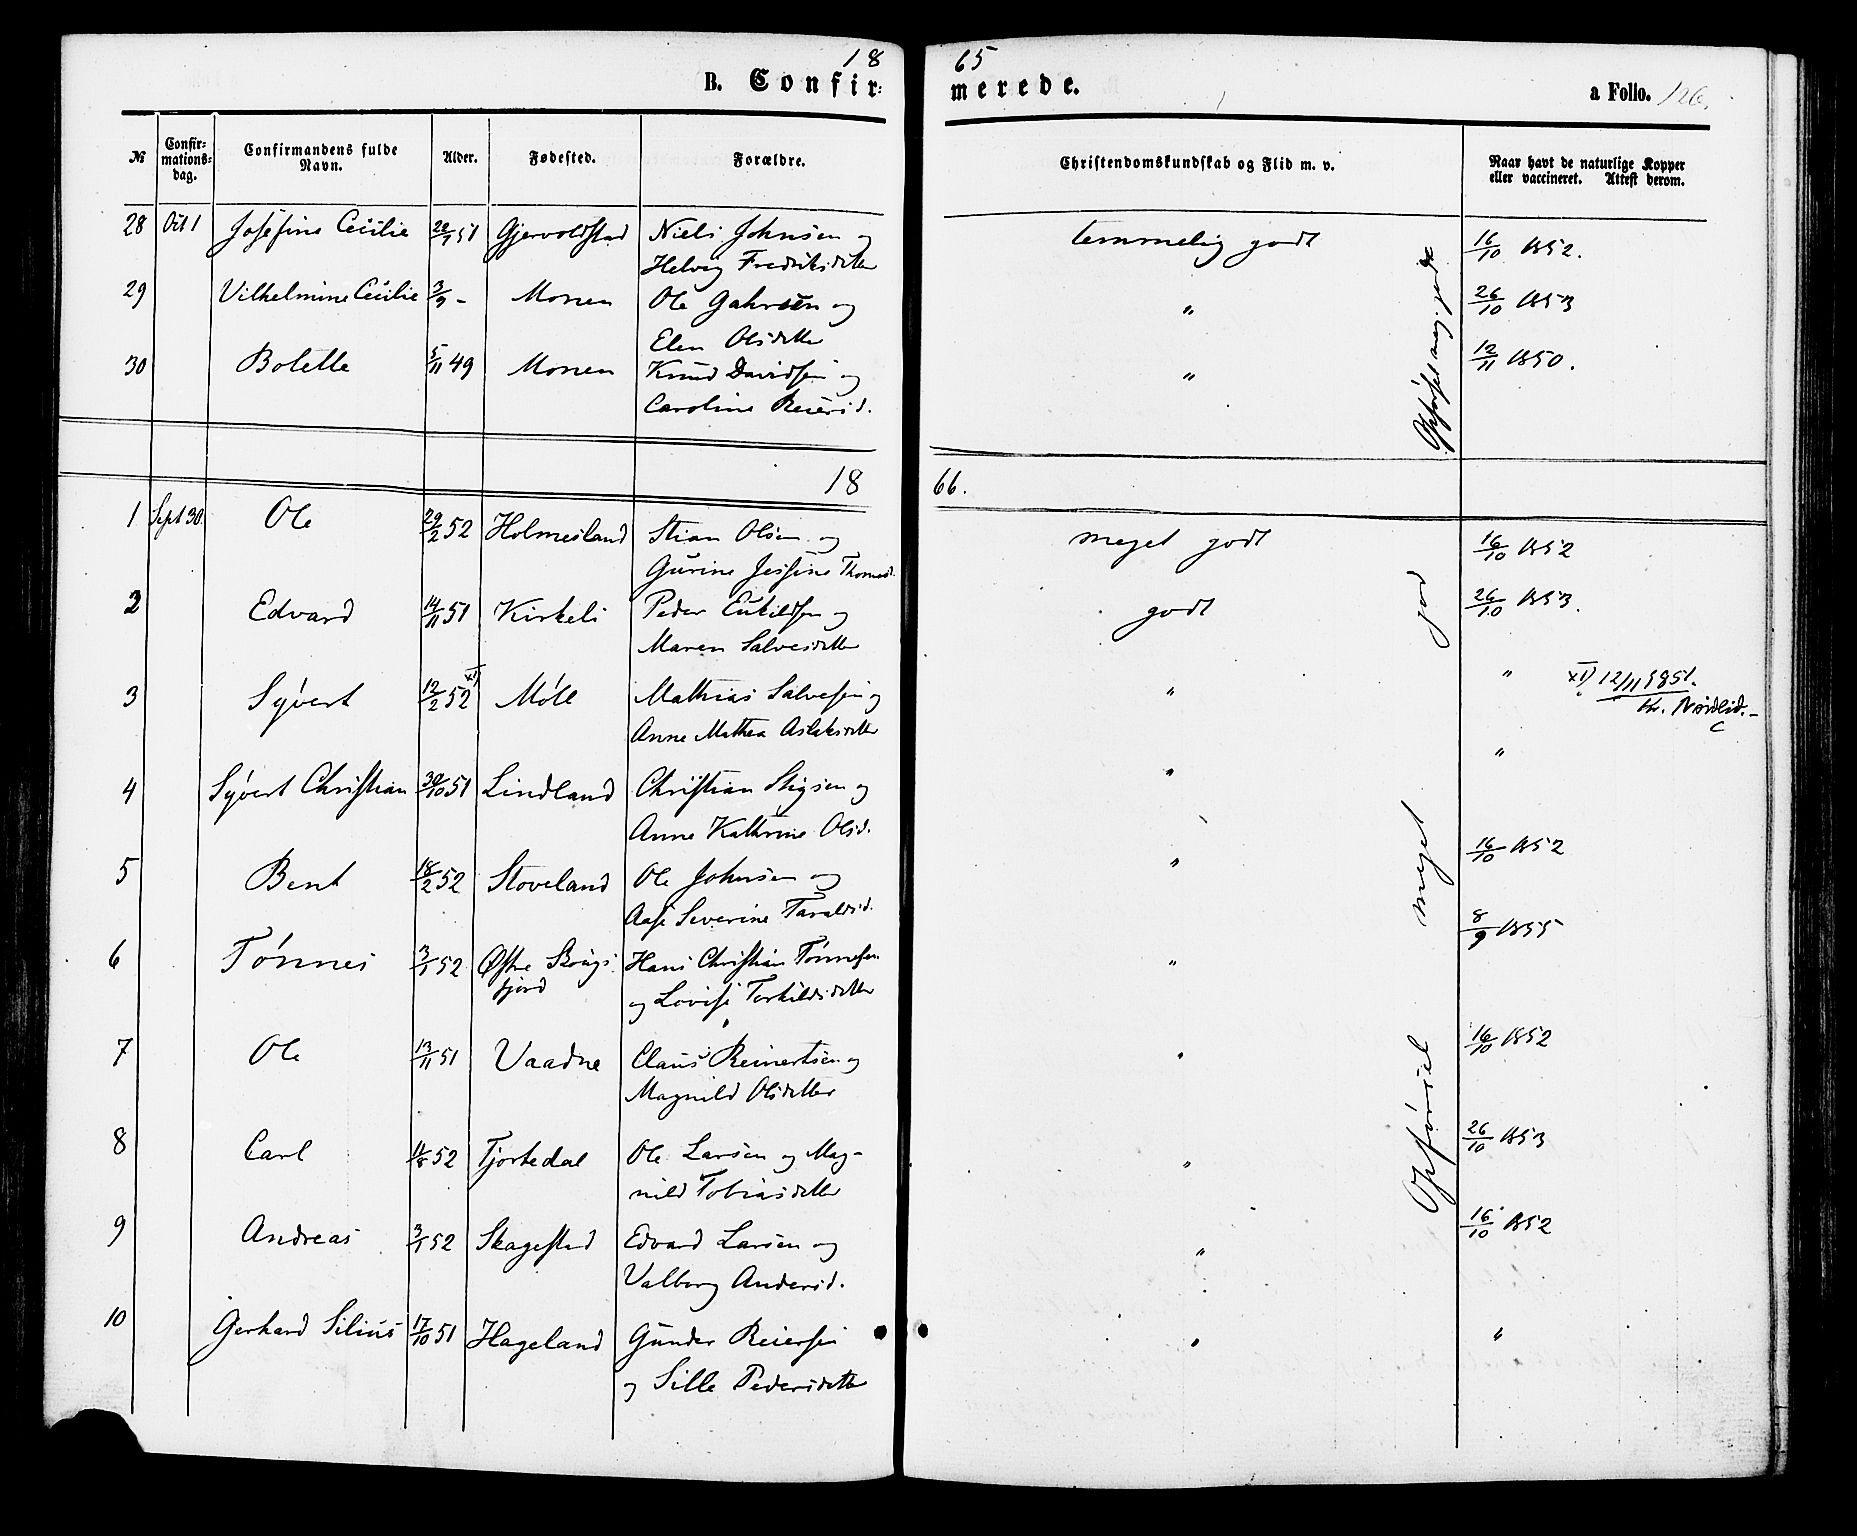 18 65
B. Confir- merede. a Folio. 126.
No Confirmationsdag. Confirmandens fulde Navn. Alder. Fødested. Forældre. Christendomskundskab og Flid m. v. Naar havt de naturlige Kopper eller vaccineret. Attest derom.
28 Oct 1 Josefine Cecilie 28/7 51 Gjervoldstad Niels Johnsen og temmelig godt 16/10 1852.
Helvig Fredriksdatter
29 Vilhelmine Cecilie 3/9 - Monen Ole Gahrsen og " 26/10 1853
Elen Olsdatter
30 Bolette 5/11 49 Monen Knud Davidsen og " 12/11 1850.
Caroline Reiersd.
Opførsel meg. gode
18 66.
1 Sept 30. Ole 29/2 52 Holmesland Stian Olsen og meget godt 16/10 1852
Gurine Jesfine Thomasd.
2 Edvard 14/11 51 Kirkeli Peder Eukildsen og godt 26/10 1853.
Maren Salvesdatter
3 Syvert 12/2 52 x1) Möll Mathias Salvesen og " " x1) 12/11 1851.
Anne Mathea Aslaksdatter Kr. Nordlid.
4 Syvert Christian 30/10 51 Lindland Christian Stigsen og " "
Anne Kathrine Olsd.
5 Bent 18/2 52 Stoveland Ole Johnsen og " 16/10 1852
Aase Severine Taraldsd.
6 Tønnes 3/1 52 Østre Skougs Hans Christian Tønnesen " 8/9 1855
fjord og Lovise Torkildsdatter
7 Ole 13/11 51 Vaadne Claus Reinertsen og " 16/10 1852
Magnild Olsdatter
8 Carl 11/8 52 Tjortedal Ole Larsen og Mag- " 26/10 1853
nild Tobiasdatter
9 Andreas 3/1 52 Skagestad Edvard Larsen og " 16/10 1852
Valborg Andersd.
10 Gerhard Silius 17/10 51 Hageland Gunder Reiersen " "
og Sille Pedersdatter
Opførsel meget god